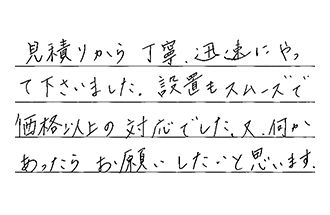 見積りから丁寧、迅速にやっ
て下さいました。設置もスムーズで
価格以上の対応でした。又、何か
あったらお願いしたいと思います。